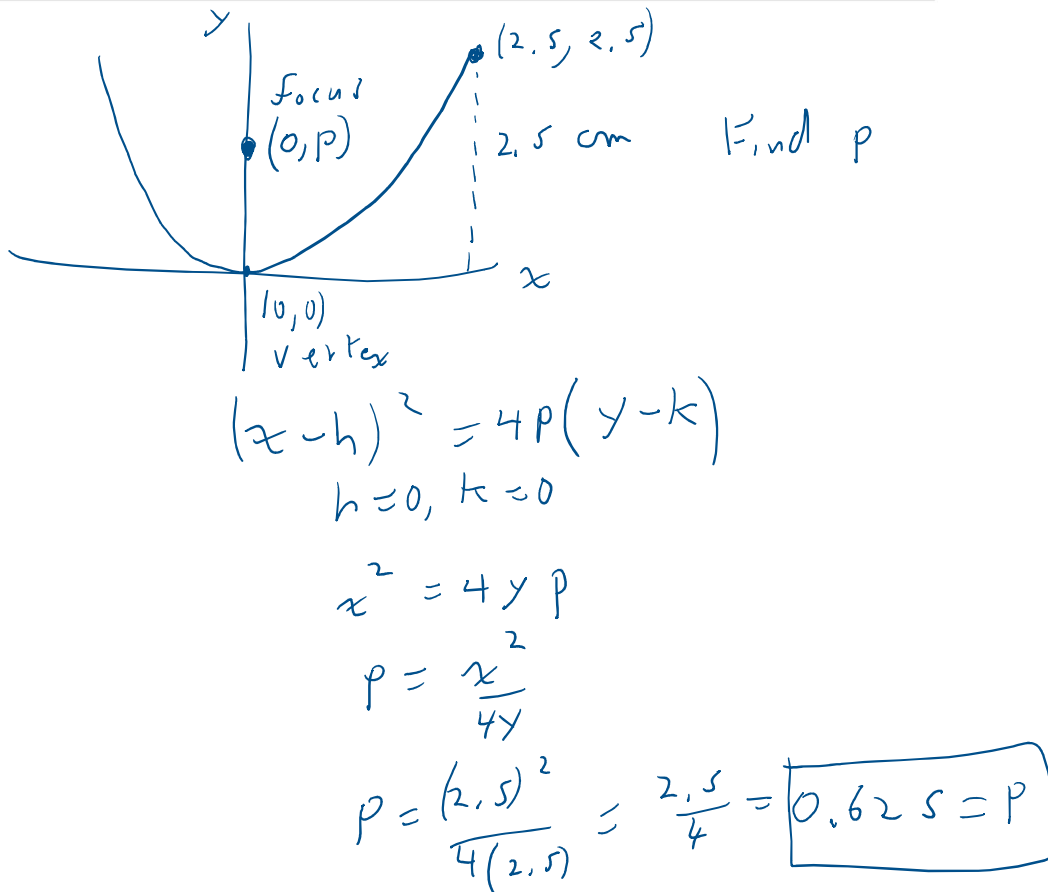 y
(2.5, 2.5)
focus
(0,p)
2.5 cm
Find p
x
(0,0)
vertex
(x-h)² = 4p(y-k)
h=0, k=0
x² = 4yp
p = x²/4y
p = (2.5)²/4(2.5) = 2.5/4 = 0.625 = p